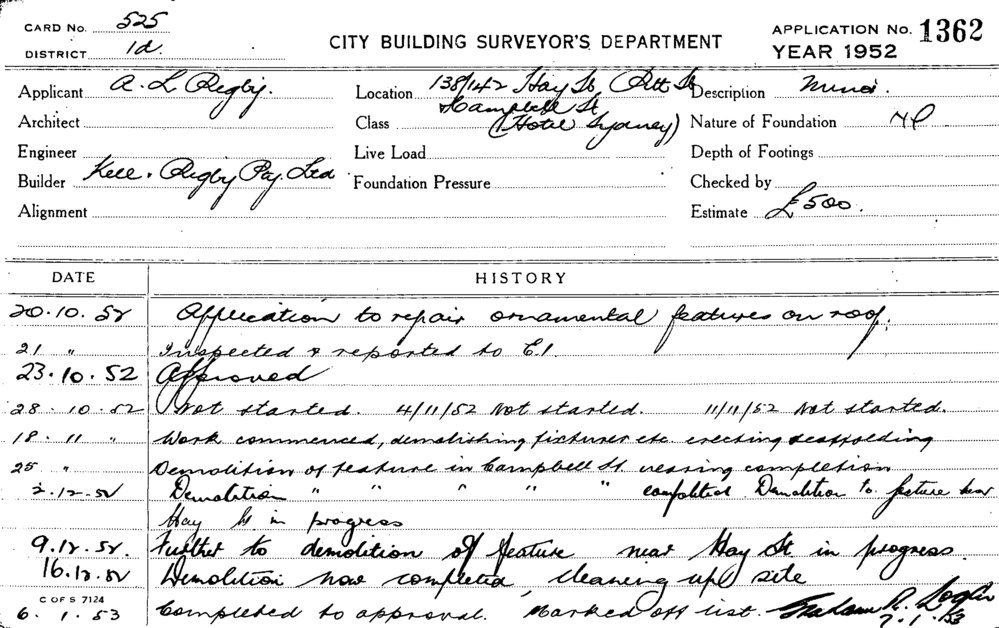 CARD No. 525
DISTRICT 1d.
CITY BUILDING SURVEYOR'S DEPARTMENT
APPLICATION No. 1362
YEAR 1952
Applicant A. L Rigby.
Architect
Engineer
Builder Kell & Rigby Pty. Ltd
Alignment
Location 138/142 Hay St, Pitt St
Campbell St
Class (Hotel Sydney)
Live Load
Foundation Pressure
Description Minor
Nature of Foundation
Depth of Footings
Checked by
Estimate £500.
DATE HISTORY
20.10.52 Application to repair ornamental features on roof.
21 " Inspected & reported to C.I.
23.10.52 Approved
28.10.52 Not started. 4/11/52 Not started. 11/11/52 Not started.
18.11 " Work commenced, demolishing fixtures etc. erecting scaffolding
25 " Demolition of feature in Campbell St nearing completion
2.12.52 Demolition " " " " " completed. Demolition to feature near
Hay St. in progress
9.12.52. Further to demolition of feature near Hay St. in progress
16.12.52 Demolition now completed, cleaning up site
C OF S 7124
6.1.53 Completed to approval. Marked off list. Graham R.
7.1.53